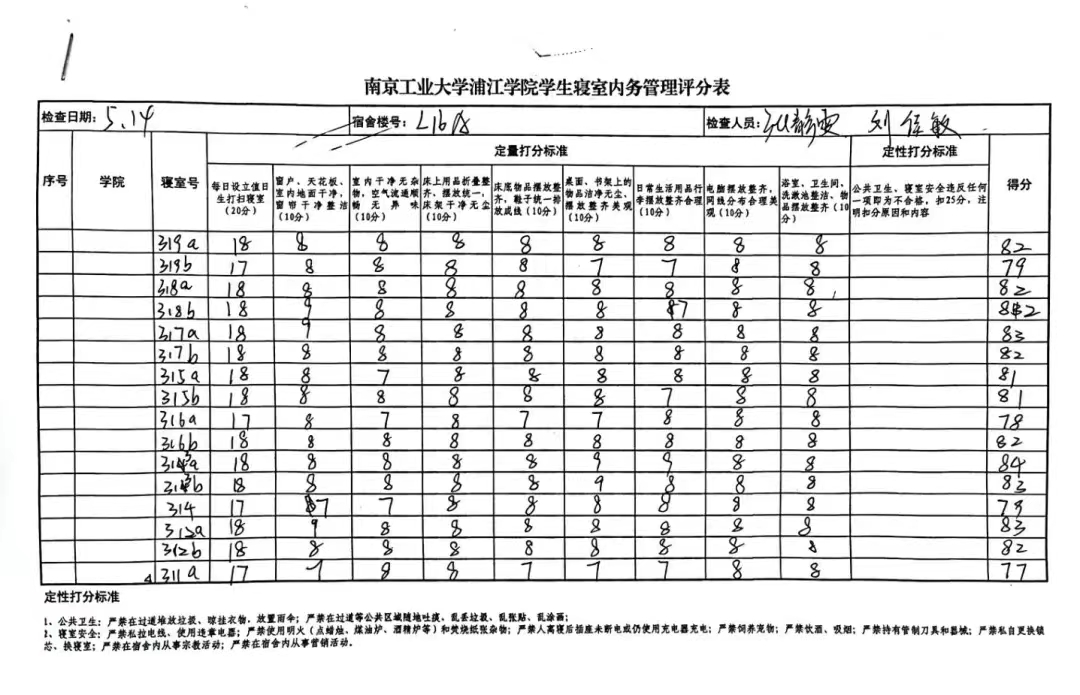 南京工业大学浦江学院学生寝室内务管理评分表
检查日期：5.14 宿舍楼号：L16A 检查人员：
定量打分标准 定性打分标准
序号 学院 寝室号 每日设立值日生打扫寝室（20分） 窗户、天花板、室内地面干净，窗帘干净整洁（10分） 室内干净无杂物，空气流通顺畅无异味（10分） 床上用品折叠整齐，摆放统一，床架干净无尘（10分） 床底物品摆放整齐，鞋子统一排放成线（10分） 桌面、书架上的物品洁净无尘、摆放整齐美观（10分） 日常生活用品行李摆放整齐合理（10分） 电脑摆放整齐，网线分布合理美观（10分） 浴室、卫生间、洗漱池整洁、物品摆放整齐（10分） 公共卫生、寝室安全违反任何一项即为不合格，扣25分，注明扣分原因和内容 得分
319a 18 8 8 8 8 8 8 8 8 82
319b 17 8 8 8 8 7 7 8 8 79
318a 18 8 8 8 8 8 8 8 8 82
318b 18 9 8 8 8 8 7 8 8 82
317a 18 9 8 8 8 8 8 8 8 83
317b 18 8 8 8 8 8 8 8 8 82
315a 18 8 7 8 8 8 8 8 8 81
315b 18 8 8 8 8 8 7 8 8 81
316a 17 8 7 8 7 7 8 8 8 78
316b 18 8 8 8 8 8 8 8 8 82
313a 18 8 8 8 8 9 9 8 8 84
313b 18 8 8 8 8 9 8 8 8 83
314 17 7 7 8 8 8 8 8 8 79
312a 18 9 8 8 8 8 8 8 8 83
312b 18 8 8 8 8 8 8 8 8 82
311a 17 7 8 8 7 7 7 8 8 77
定性打分标准
1、公共卫生：严禁在过道堆放垃圾、晾挂衣物，放置雨伞；严禁在过道等公共区域随地吐痰、乱丢垃圾、乱张贴、乱涂画；
2、寝室安全：严禁私拉电线、使用违章电器；严禁使用明火（点蜡烛、煤油炉、酒精炉等）和焚烧纸张杂物；严禁人离寝后插座未断电或仍使用充电器充电；严禁饲养宠物；严禁饮酒、吸烟；严禁持有管制刀具和器械；严禁私自更换锁
芯、换寝室；严禁在宿舍内从事宗教活动；严禁在宿舍内从事营销活动。